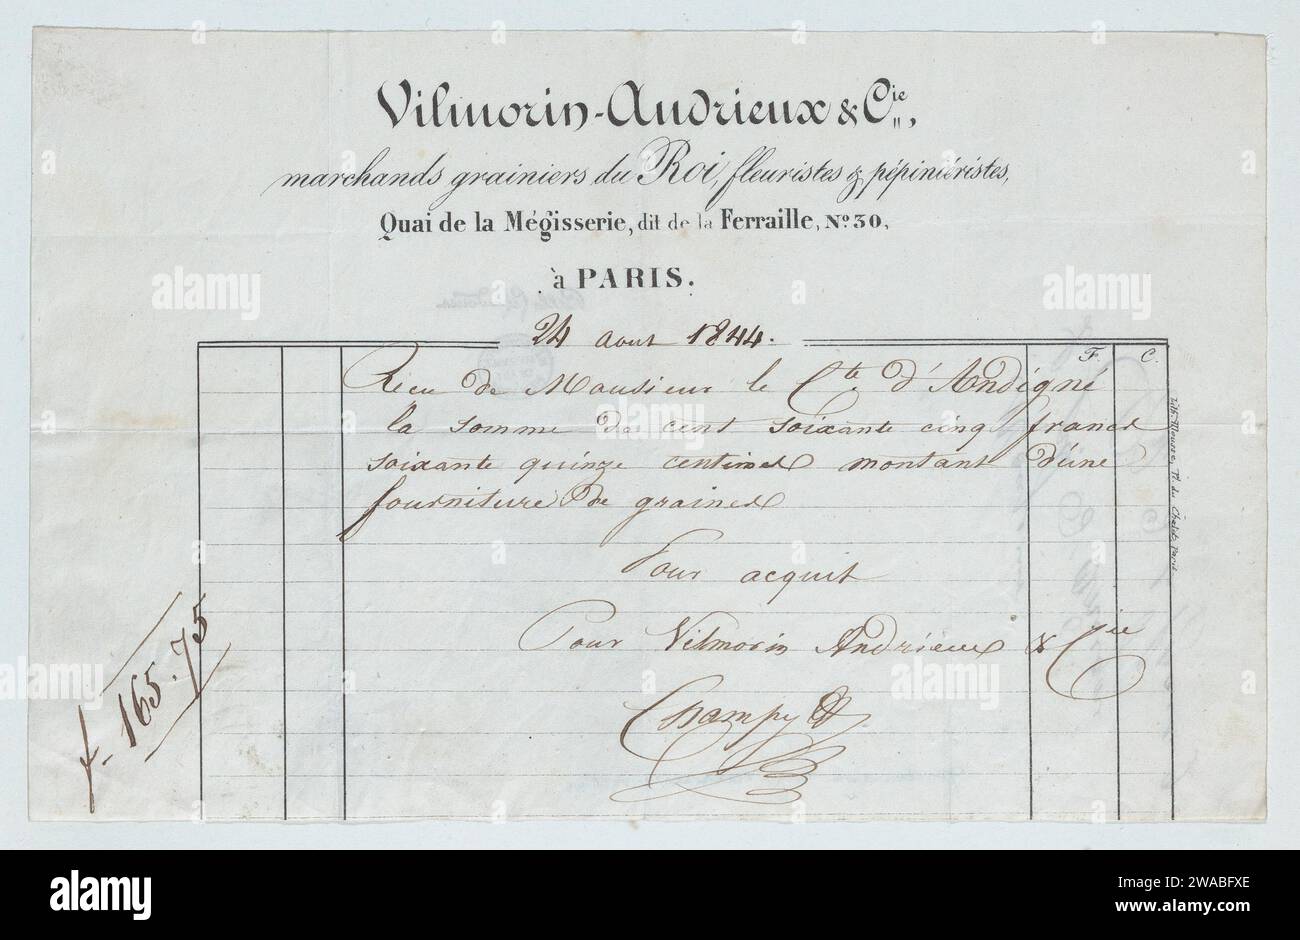 Vilmorin-Andrieux & Cie,
marchands grainiers du Roi, fleuristes & pépiniéristes,
Quai de la Mégisserie, dit de la Ferraille, No. 30,
à PARIS.
24 aout 1844.
F. C.
Reçu de Monsieur le Cte d'Andigné
la somme de cent soixante cinq francs
soixante quinze centimes montant d'une
fourniture de graines
Pour acquit
Pour Vilmorin Andrieux & Cie
Champy
f. 165.75
Paris
alamy
alamy
Image ID: 2WABFXE
www.alamy.com